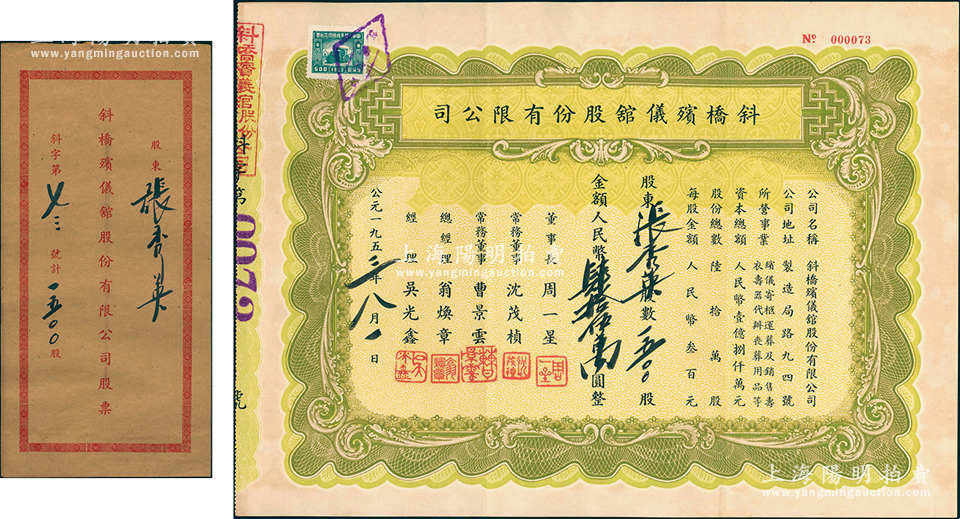 上海陽明拍賣
www.yangmingauction.com
斜橋殯儀舘股份有限公司股票
股東 張秀英
斜字第 七三 號計 一五〇〇 股
斜橋殯儀舘股份有限公司
No 000073
司公限有份股舘儀殯橋斜
公司名稱 斜橋殯儀舘股份有限公司
公司地址 製造局路九四號
所營事業 殯儀寄柩運葬及銷售壽衣壽器代辦喪葬用品等
資本總額 人民幣壹億捌仟萬元
股份總數 陸拾萬股
每股金額 人民幣叁百元
股東 張秀英 股數 一五〇〇 股
金額人民幣 肆拾伍萬 圓整
董事長 周一星
常務董事 沈茂楨
常務董事 曹景雲
總經理 翁煥章
經理 吳光鑫
公元一九五三年八月一日
第 0073 號
500
上海陽明拍賣
www.yangmingauction.com
上海陽明拍賣
www.yangmingauction.com